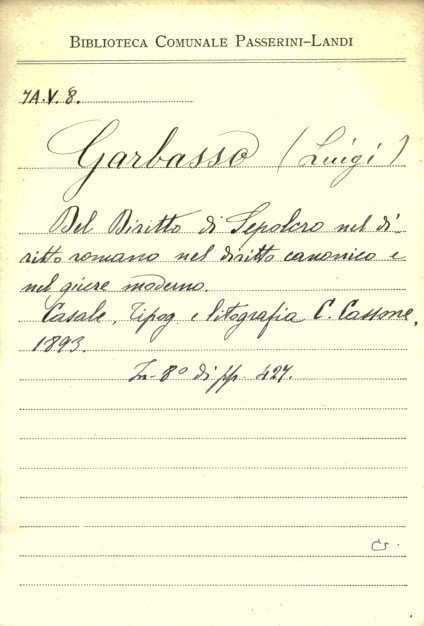 BIBLIOTECA COMUNALE PASSERINI-LANDI
7A.V.8.
Garbasso (Luigi)
Del Diritto di Sepolcro nel di-
ritto romano nel diritto canonico e
nel giure moderno.
Casale, Tipog e litografia C. Cassone,
1893.
In-8° di pp. 427.